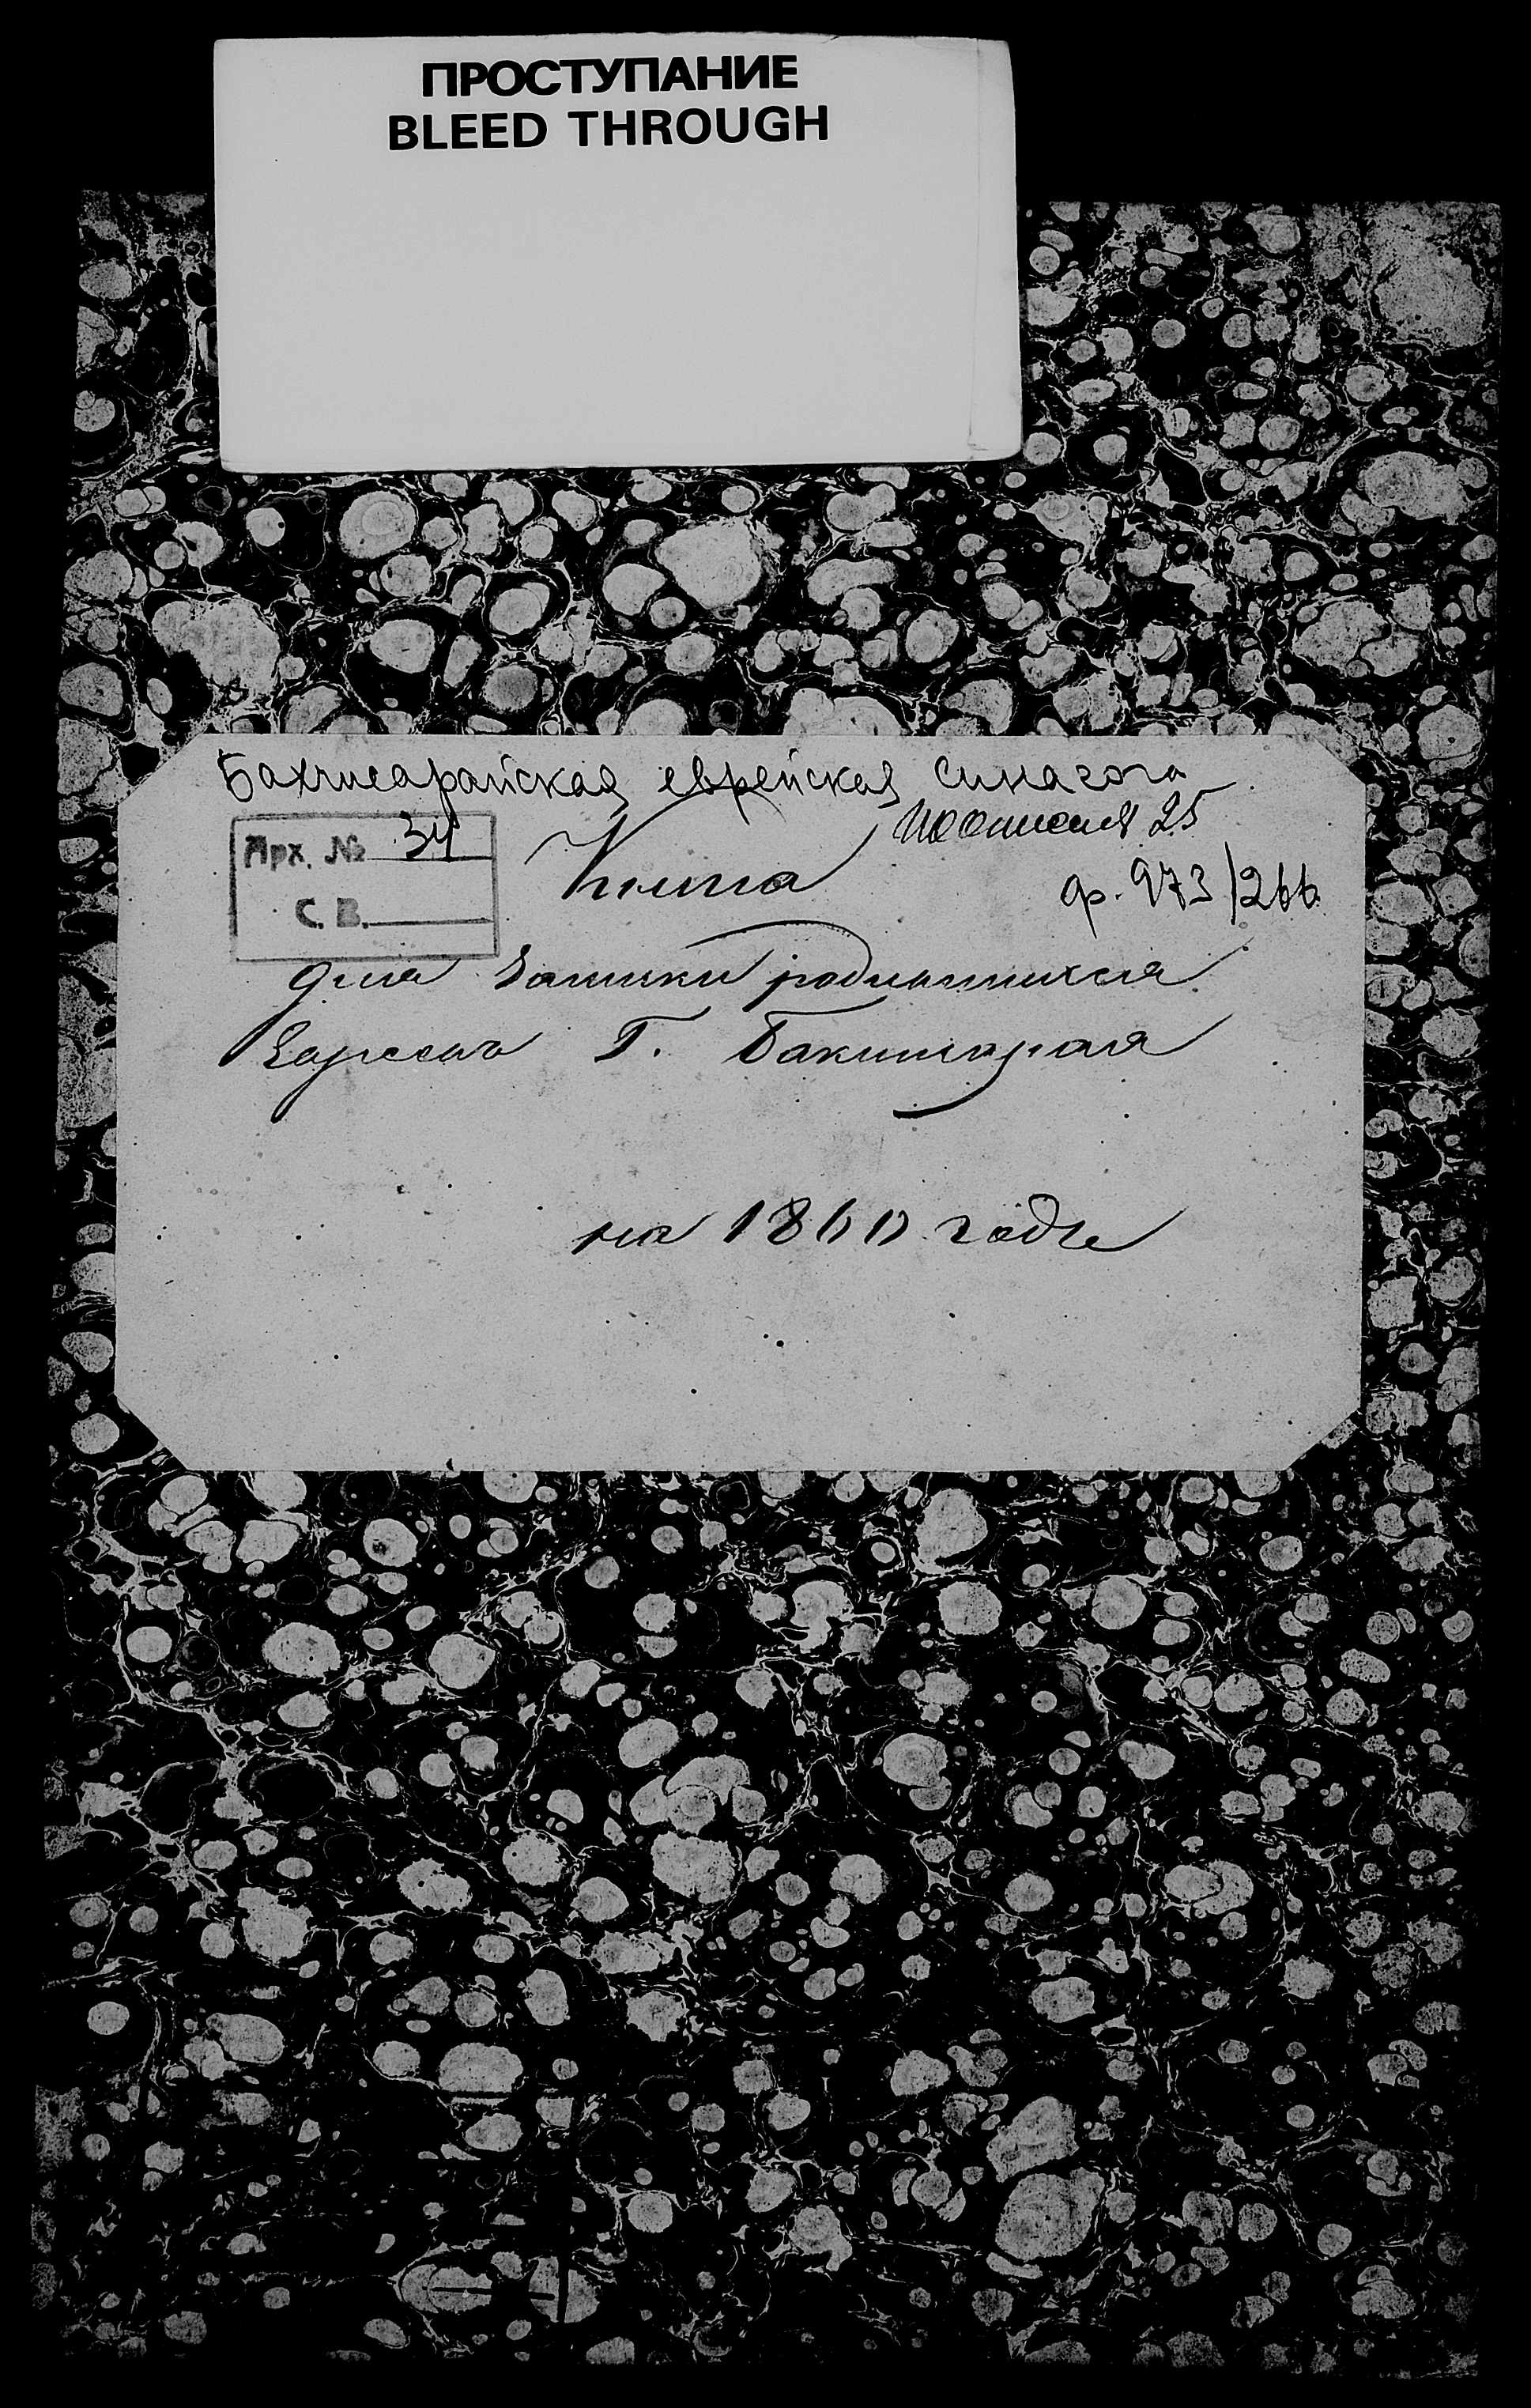 ПРОСТУПАНИЕ
BLEED THROUGH
Бахчисарайская еврейская синагога
Арх. № 34
по описи 25
Книга
ф. 973/266
С. В.
для записки родившихся
г. Бакчисарая
на 1860 годъ